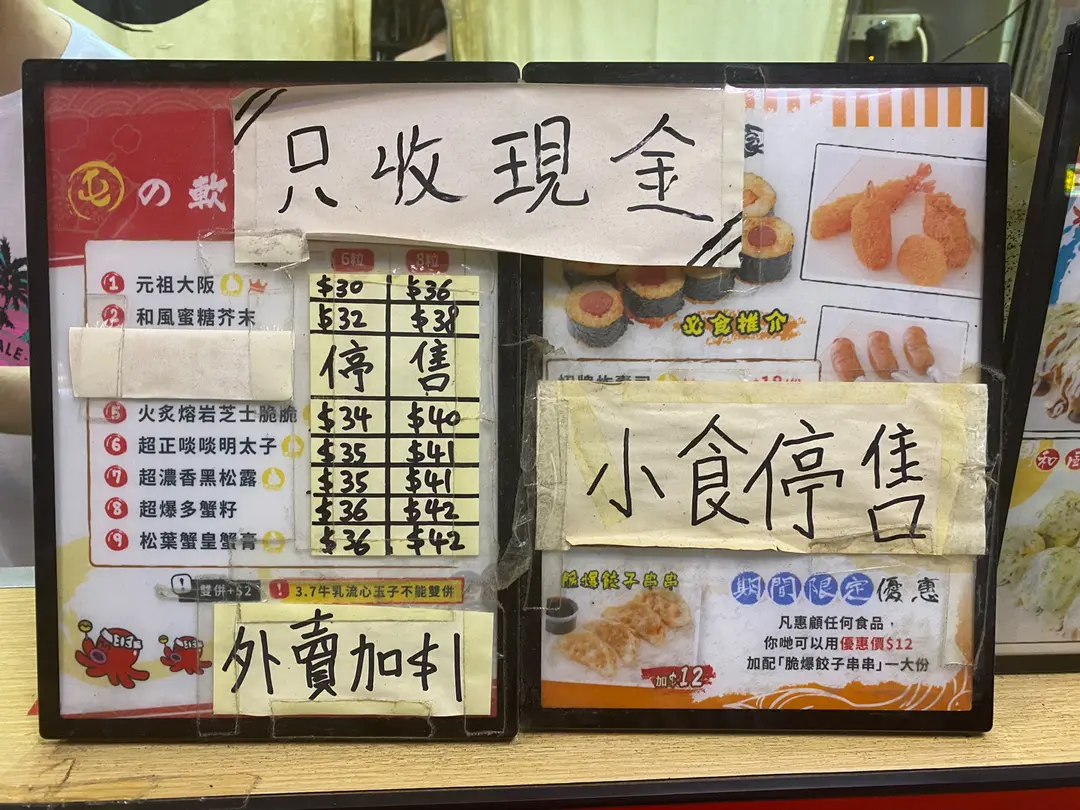 只收現金
の軟
6粒 8粒
1 元祖大阪 $30 $36
2 和風蜜糖芥末 $32 $38
停售
5 火炙熔岩芝士脆脆 $34 $40
6 超正啖啖明太子 $35 $41
7 超濃香黑松露 $35 $41
8 超爆多蟹籽 $36 $42
9 松葉蟹皇蟹膏 $36 $42
! 雙併+$2 ! 3.7牛乳流心玉子不能雙併
外賣加$1
必食推介
小食停售
脆爆餃子串串
加$12
期間限定優惠
凡惠顧任何食品，
你哋可以用優惠價$12
加配「脆爆餃子串串」一大份